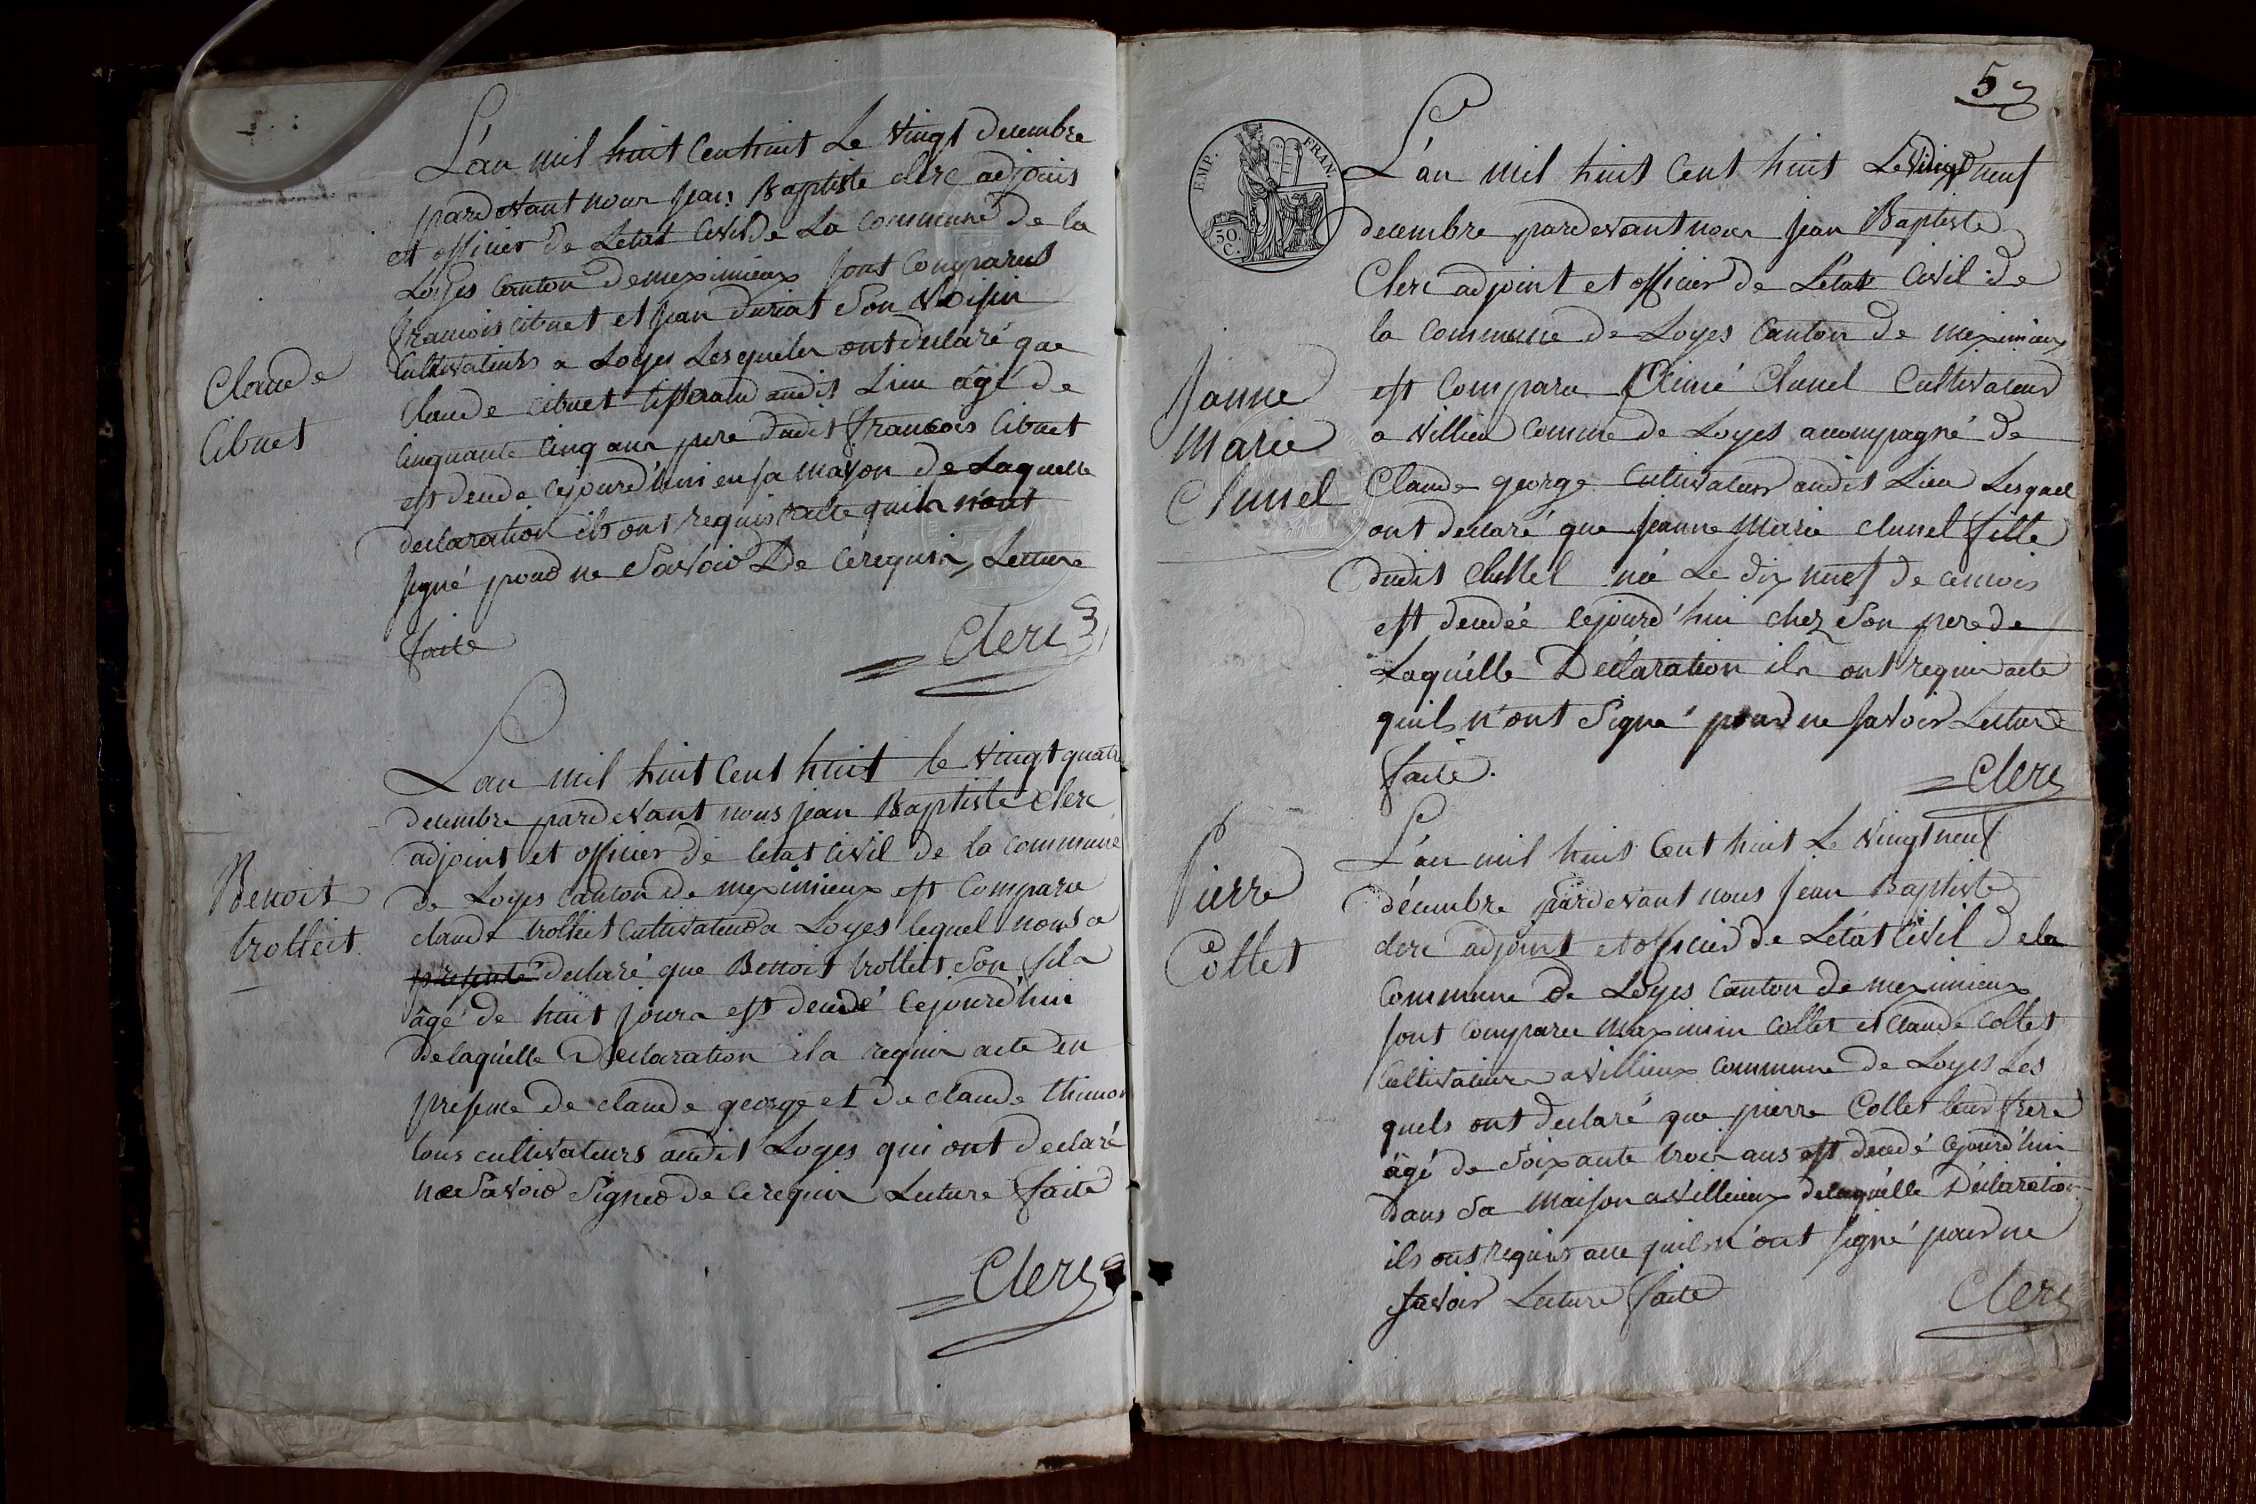 L'an mil huit cent huit Le vingt decembre
pardevant nous jean Baptiste clerc adjoint
et officier de Letat civil de La commune de la
Loyes canton de meximieux sont comparus
francois cibuet et jean duriat son voisin
cultivateurs a Loyes Lesquels ont declaré que
Claude
claude cibuet tisserand audit Lieu âgé de
Cibuet
cinquante cinq ans pere dudit francois Cibuet
est decede cejourd'hui en sa mayson de Laquelle
declaration ils ont requis acte quils n'ont
signé pour ne Savoir De ce requis, Lecture
faite
Clerc
L'an mil huit cent huit le vingt quatre
decembre pardevant nous jean Baptiste Clerc
adjoint et officier de letat civil de la commune
Benoit
de Loyes canton de meximieux est comparu
trolliet
claude trolliet cultivateur a Loyes lequel nous a
presenté declaré que Benoit trolliet Son fils
âgé de huit jours est decedé cejourd'hui
delaquelle Declaration il a requis acte en
presence de claude george et de claude thimon
tous cultivateurs audit Loyes qui ont declaré
ne Savoir Signer de ce requis Lecture faite
Clerc
5
EMP. FRAN.
50 C.
L'an mil huit cent huit Le vingt neuf
decembre pardevant nous jean Baptiste
Clerc adjoint et officier de Letat civil de
la commune de Loyes canton de meximieux
Janne
est comparu Aimé Clunel Cultivateur
Marie
a villieu comune de Loyes accompagné de
Clunel
Claude george cultivateur audit Lieu Lesquel
ont declaré que jeanne Marie clunel fille
dudit clunel née Le dix neuf de cemois
est decedéé cejourd'hui chez Son pere de
Laquelle Déclaration ils ont requis acte
quils n'ont Signé pour ne savoir Lecture
faite.
Clerc
L'an mil huit Cent huit Le vingt neuf
Pierre
décembre pardevant nous Jean Baptiste
Collet
clerc adjoint et officier de Létat civil dela
commune de Loyes canton de meximieux
sont comparu maximin collet et claude collet
cultivateurs a villieux commune de Loyes Les
quels ont declaré que pierre Collet leur frere
âgé de Soixante trois ans est decedé cejourd'hui
dans Sa maison a villieux delaquélle Déclaration
ils ont requis acte quils n'ont signé pour ne
savoir Lecture faite
Clerc